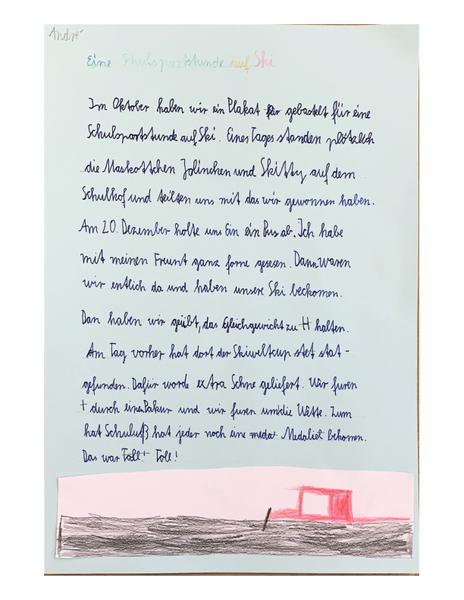 André
Eine Schulsportstunde auf Ski
Im Oktober haben wir ein Plakat für gebastelt für eine
Schulsportstunde auf Ski. Eines Tages standen plötzlich
die Maskottchen Jolinchen und Skitty auf dem
Schulhof und teilten uns mit das wir gewonnen haben.
Am 20. Dezember holte uns Ein ein Bus ab. Ich habe
mit meinen Freunt ganz forne gesesen. Dann waren
wir entlich da und haben unsere Ski beckomen.
Dan haben wir geübt, das Gleichgewicht zu H halten.
Am Tag vorher hat dort der Skiweltcup stet stat-
gefunden. Dafür worde extra Schne geliefert. Wir furen
durch einen und wir furen um die Wette. Zum
hat Schuluß hat jeder noch eine medat Medaliet bekomen.
Das war Toll! Toll!